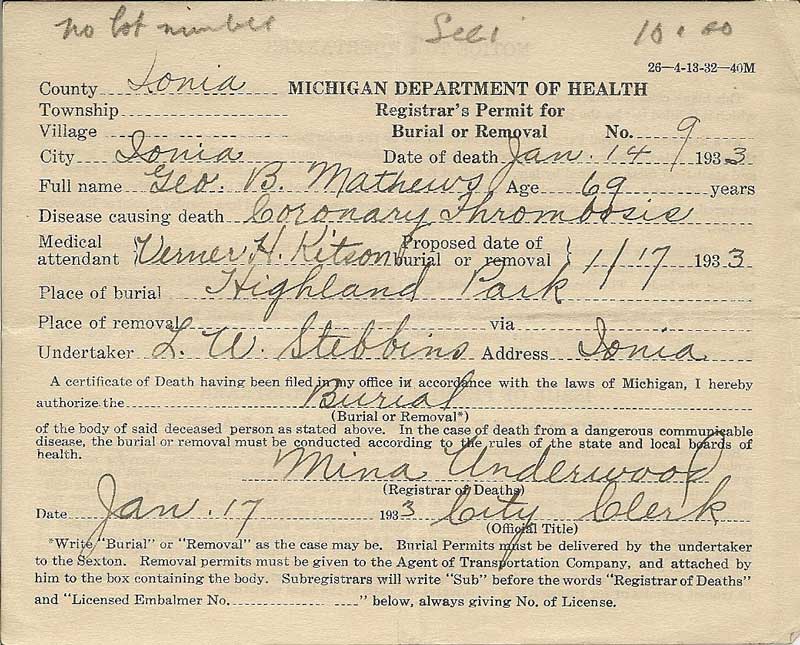 no lot number 10.00
26—4-13-32—40M
County Ionia MICHIGAN DEPARTMENT OF HEALTH
Township Registrar's Permit for
Village Burial or Removal No. 9
City Ionia Date of death Jan. 14 1933
Full name Geo. B. Mathews Age 69 years
Disease causing death Coronary Thrombosis
Medical attendant Verner H. Kitson Proposed date of burial or removal 1/17 1933
Place of burial Highland Park
Place of removal via
Undertaker L. W. Stebbins Address Ionia
A certificate of Death having been filed in my office in accordance with the laws of Michigan, I hereby
authorize the Burial
(Burial or Removal*)
of the body of said deceased person as stated above. In the case of death from a dangerous communicable
disease, the burial or removal must be conducted according to the rules of the state and local boards of
health.
Mina Underwood
(Registrar of Deaths)
Date Jan. 17 1933 City Clerk
(Official Title)
*Write "Burial" or "Removal" as the case may be. Burial Permits must be delivered by the undertaker
to the Sexton. Removal permits must be given to the Agent of Transportation Company, and attached by
him to the box containing the body. Subregistrars will write "Sub" before the words "Registrar of Deaths"
and "Licensed Embalmer No. " below, always giving No. of License.